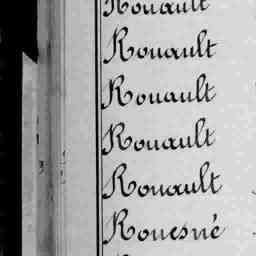 Rouault
Rouault
Rouault
Rouault
Rouault
Rouesné